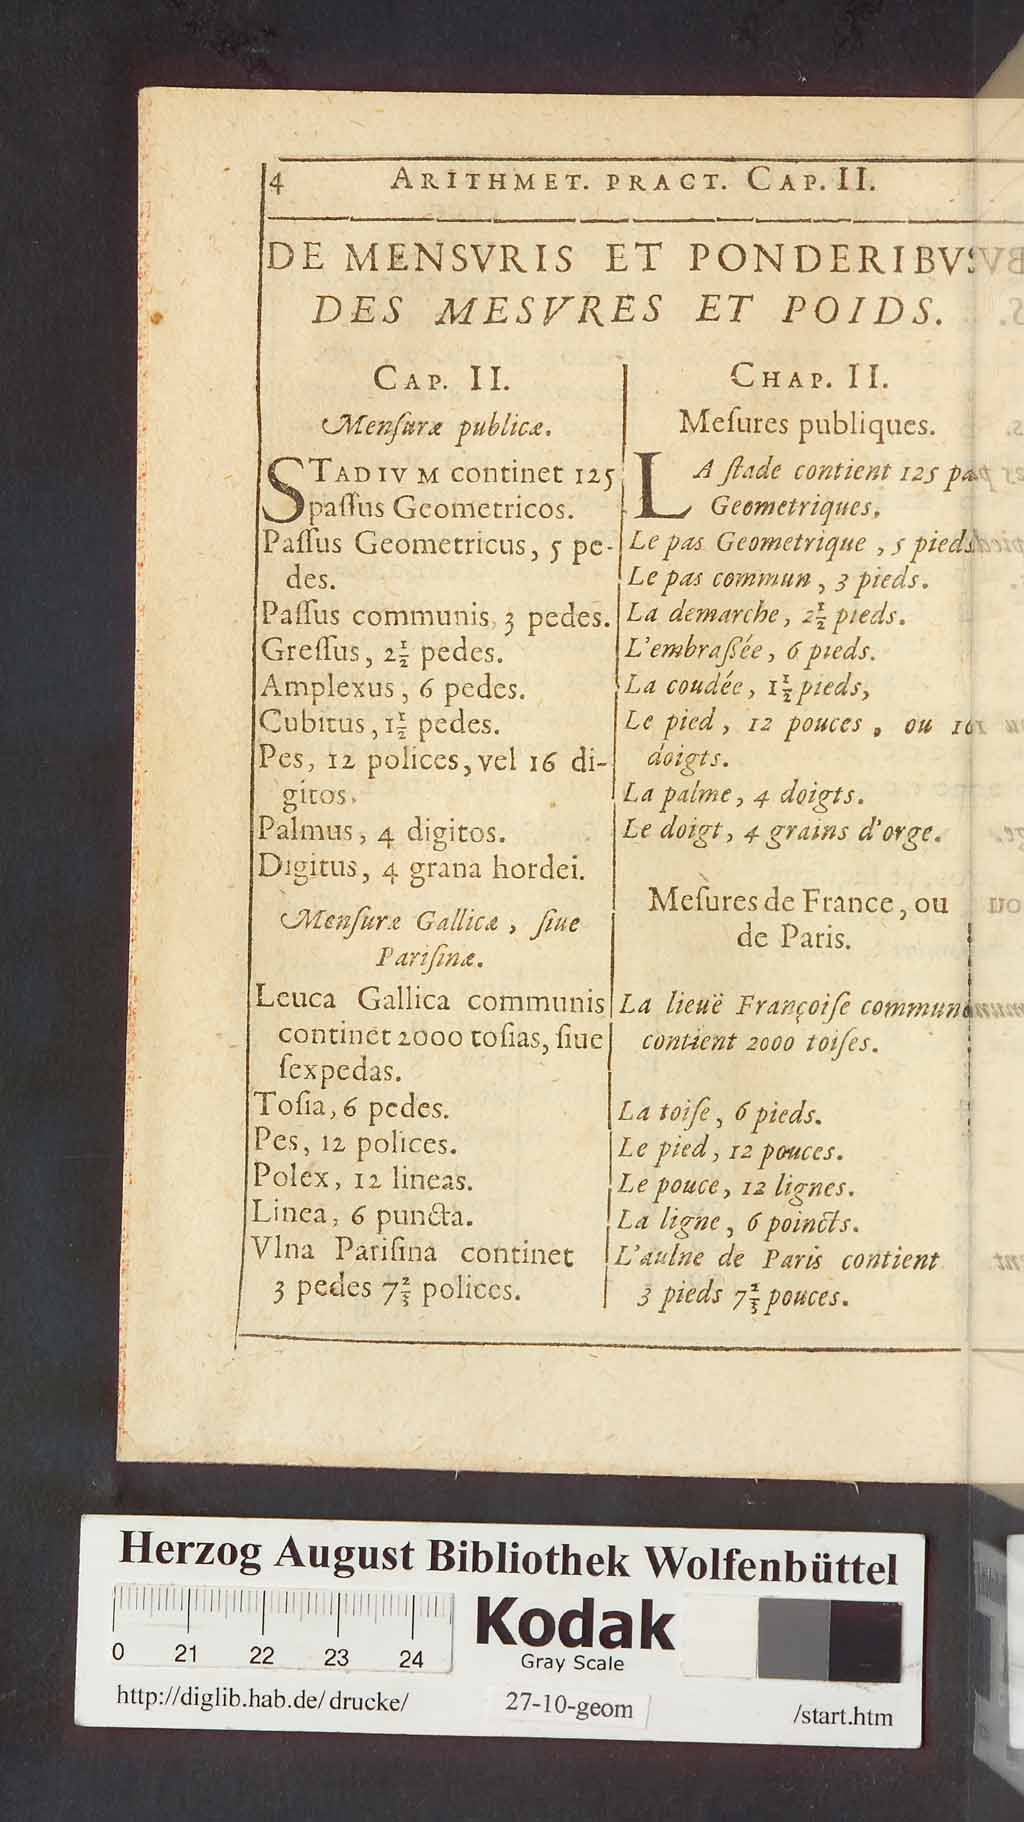 4 ARITHMET. PRACT. CAP. II.
DE MENSVRIS ET PONDERIBVS
DES MESVRES ET POIDS.
CAP. II.
Menſuræ publicæ.
STADIVM continet 125
paſſus Geometricos.
Paſſus Geometricus, 5 pe-
des.
Paſſus communis, 3 pedes.
Greſſus, 2½ pedes.
Amplexus, 6 pedes.
Cubitus, 1½ pedes.
Pes, 12 polices, vel 16 di-
gitos.
Palmus, 4 digitos.
Digitus, 4 grana hordei.
Menſuræ Gallicæ, ſiue
Pariſinæ.
Leuca Gallica communis
continet 2000 toſias, ſiue
ſexpedas.
Toſia, 6 pedes.
Pes, 12 polices.
Polex, 12 lineas.
Linea, 6 puncta.
Vlna Pariſina continet
3 pedes 7⅔ polices.
CHAP. II.
Meſures publiques.
LA ſtade contient 125 pas
Geometriques.
Le pas Geometrique, 5 pieds
Le pas commun, 3 pieds.
La demarche, 2½ pieds.
L'embraſſée, 6 pieds.
La coudée, 1½ pieds,
Le pied, 12 pouces, ou 16
doigts.
La palme, 4 doigts.
Le doigt, 4 grains d'orge.
Meſures de France, ou
de Paris.
La lieuë Françoiſe commune
contient 2000 toiſes.
La toiſe, 6 pieds.
Le pied, 12 pouces.
Le pouce, 12 lignes.
La ligne, 6 poincts.
L'aulne de Paris contient
3 pieds 7⅔ pouces.
Herzog August Bibliothek Wolfenbüttel
0 21 22 23 24
Kodak
Gray Scale
http://diglib.hab.de/drucke/ 27-10-geom /start.htm